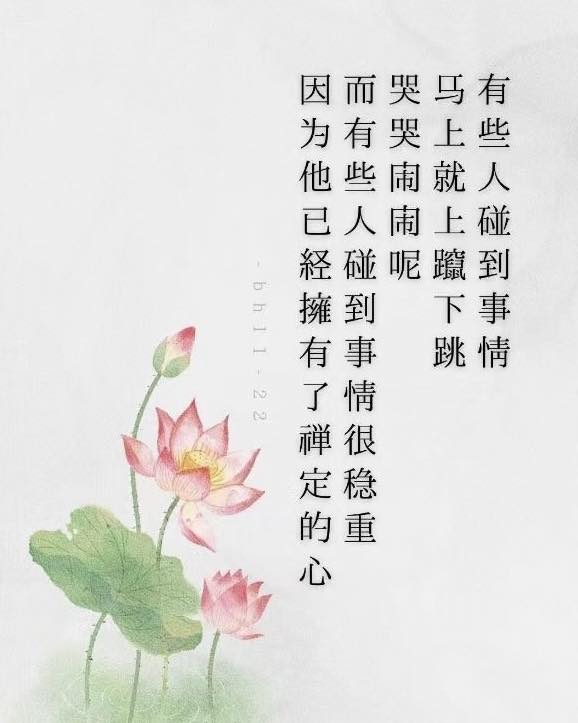 有些人碰到事情
马上就上躥下跳
哭哭闹闹呢
而有些人碰到事情很稳重
因为他已経擁有了禅定的心
-bh11-22